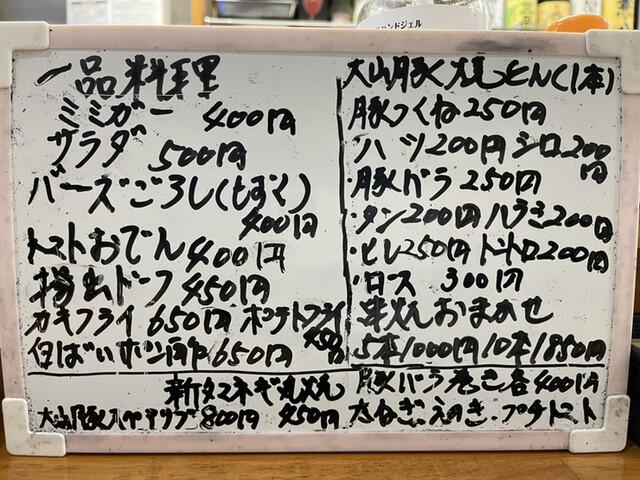 ハンドジェル
一品料理
ミミガー 400円
サラダ 500円
バーズごろし(もずく)
400円
トマトおでん 400円
揚出ドーフ 450円
カキフライ 650円 ポテトフライ
450円
白ばい 650円
新タマネギ丸焼
大山豚 800円 450円
大山豚焼とん(1本)
豚つくね 250円
ハツ 200円 シロ 200円
・豚バラ 250円
・タン 200円 ハラミ 200円
・ヒレ 250円 トントロ 200円
・ロース 300円
串焼おまかせ
5本 1000円 10本 1850円
豚バラ巻き各400円
大ねぎ・えのき・プチトマト